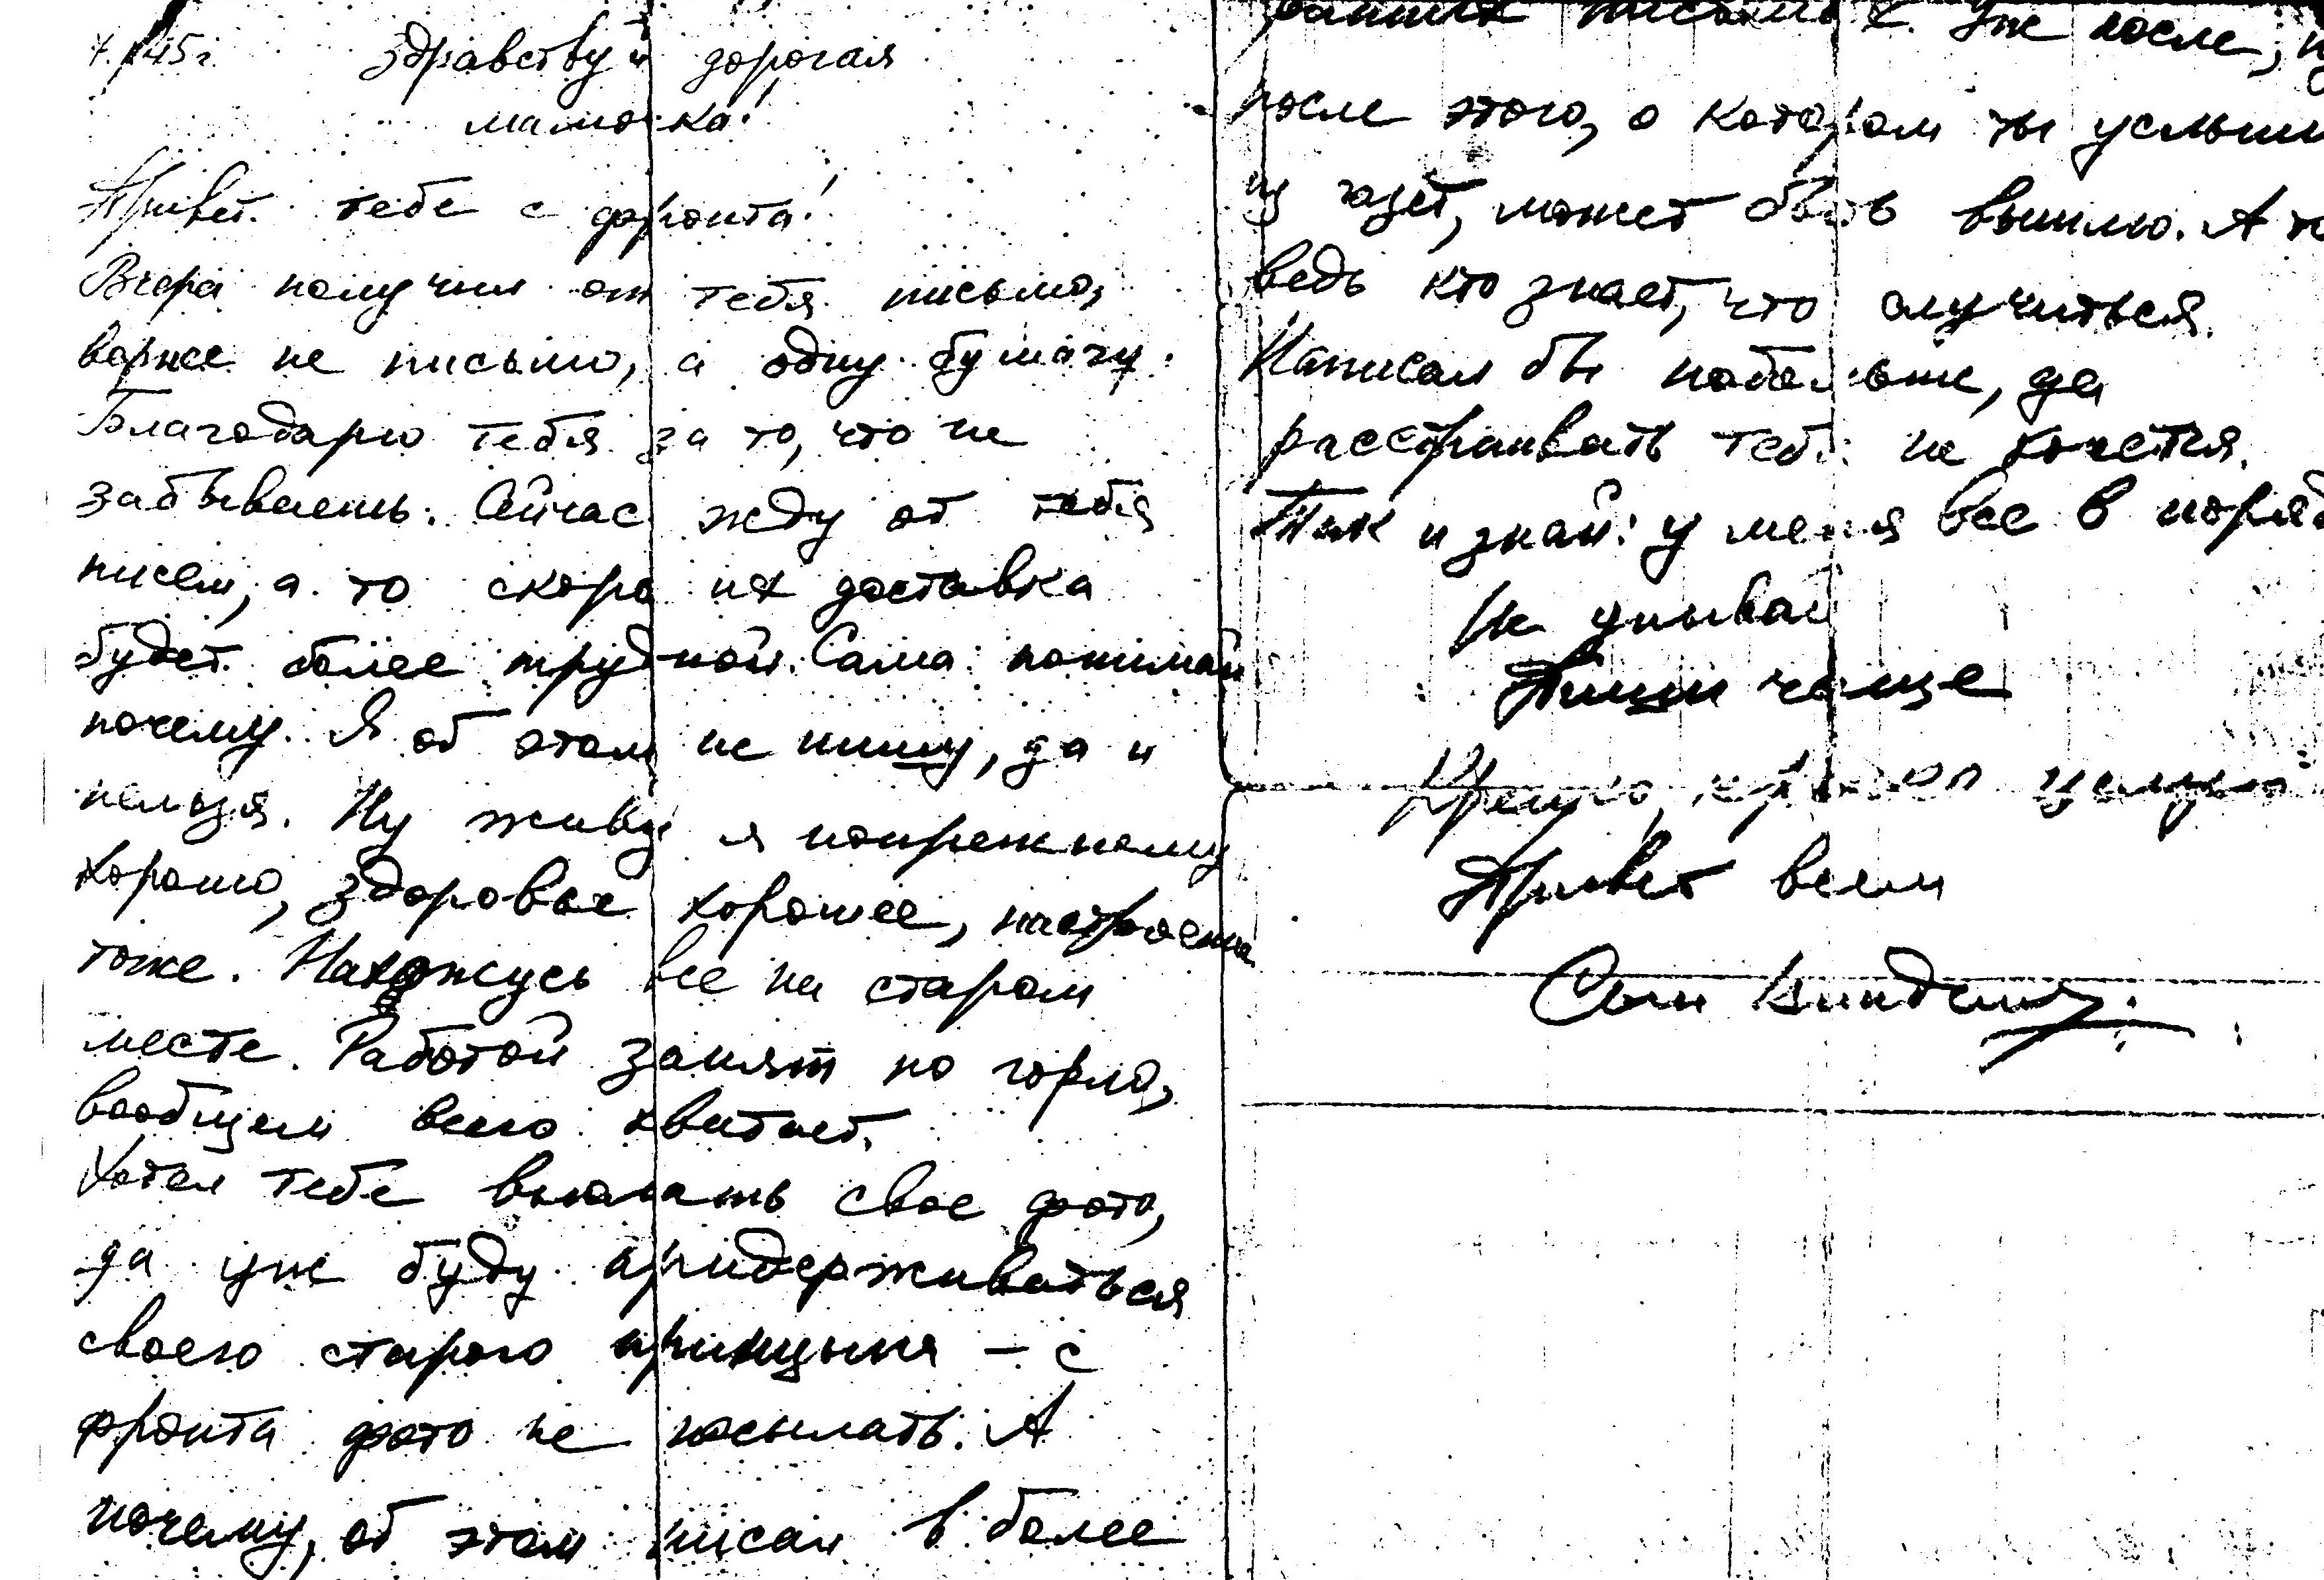 45г. Здравствуй дорогая
мамочка!
Привет тебе с фронта!
Вчера получил от тебя письмо,
вернее не письмо, а одну бумагу.
Благодарю тебя за то, что не
забываешь. Сейчас жду от тебя
писем, а то скоро их доставка
будет более трудной. Сама понимай
почему. Я об этом не пишу, да и
нельзя. Ну живу я попрежнему
хорошо, здоровье хорошее, настроение
тоже. Нахожусь все на старом
месте. Работой занят по горло,
вообщем всего хватает.
Хотел тебе выслать свое фото,
да уж буду придерживаться
своего старого принцыпа – с
фронта фото не посылать. А
почему, об этом писал в более
ранних письмах. Уж после,
после этого, о котором ты услыши
из газет, может быть вышлю. А то
ведь кто знает, что случиться.
Написал бы побольше, да
расстраивать тебя не хочется.
Так и знай: у меня все в поряд
Не унывай
Пиши чаще
Крепко, крепко целую
Привет всем
Сын